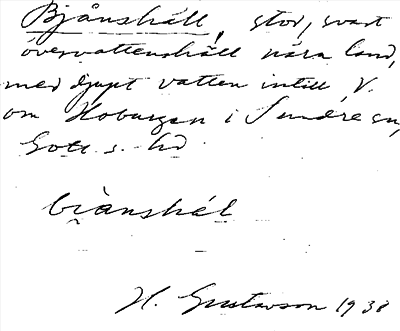 Bjånshäll, stor, svart
övervattenshäll nära land,
med djupt vatten intill, V.
om Hoburgen i Sundre sn,
Gotl. s. hd
bi̯ànshél
H. Gustavson 1938